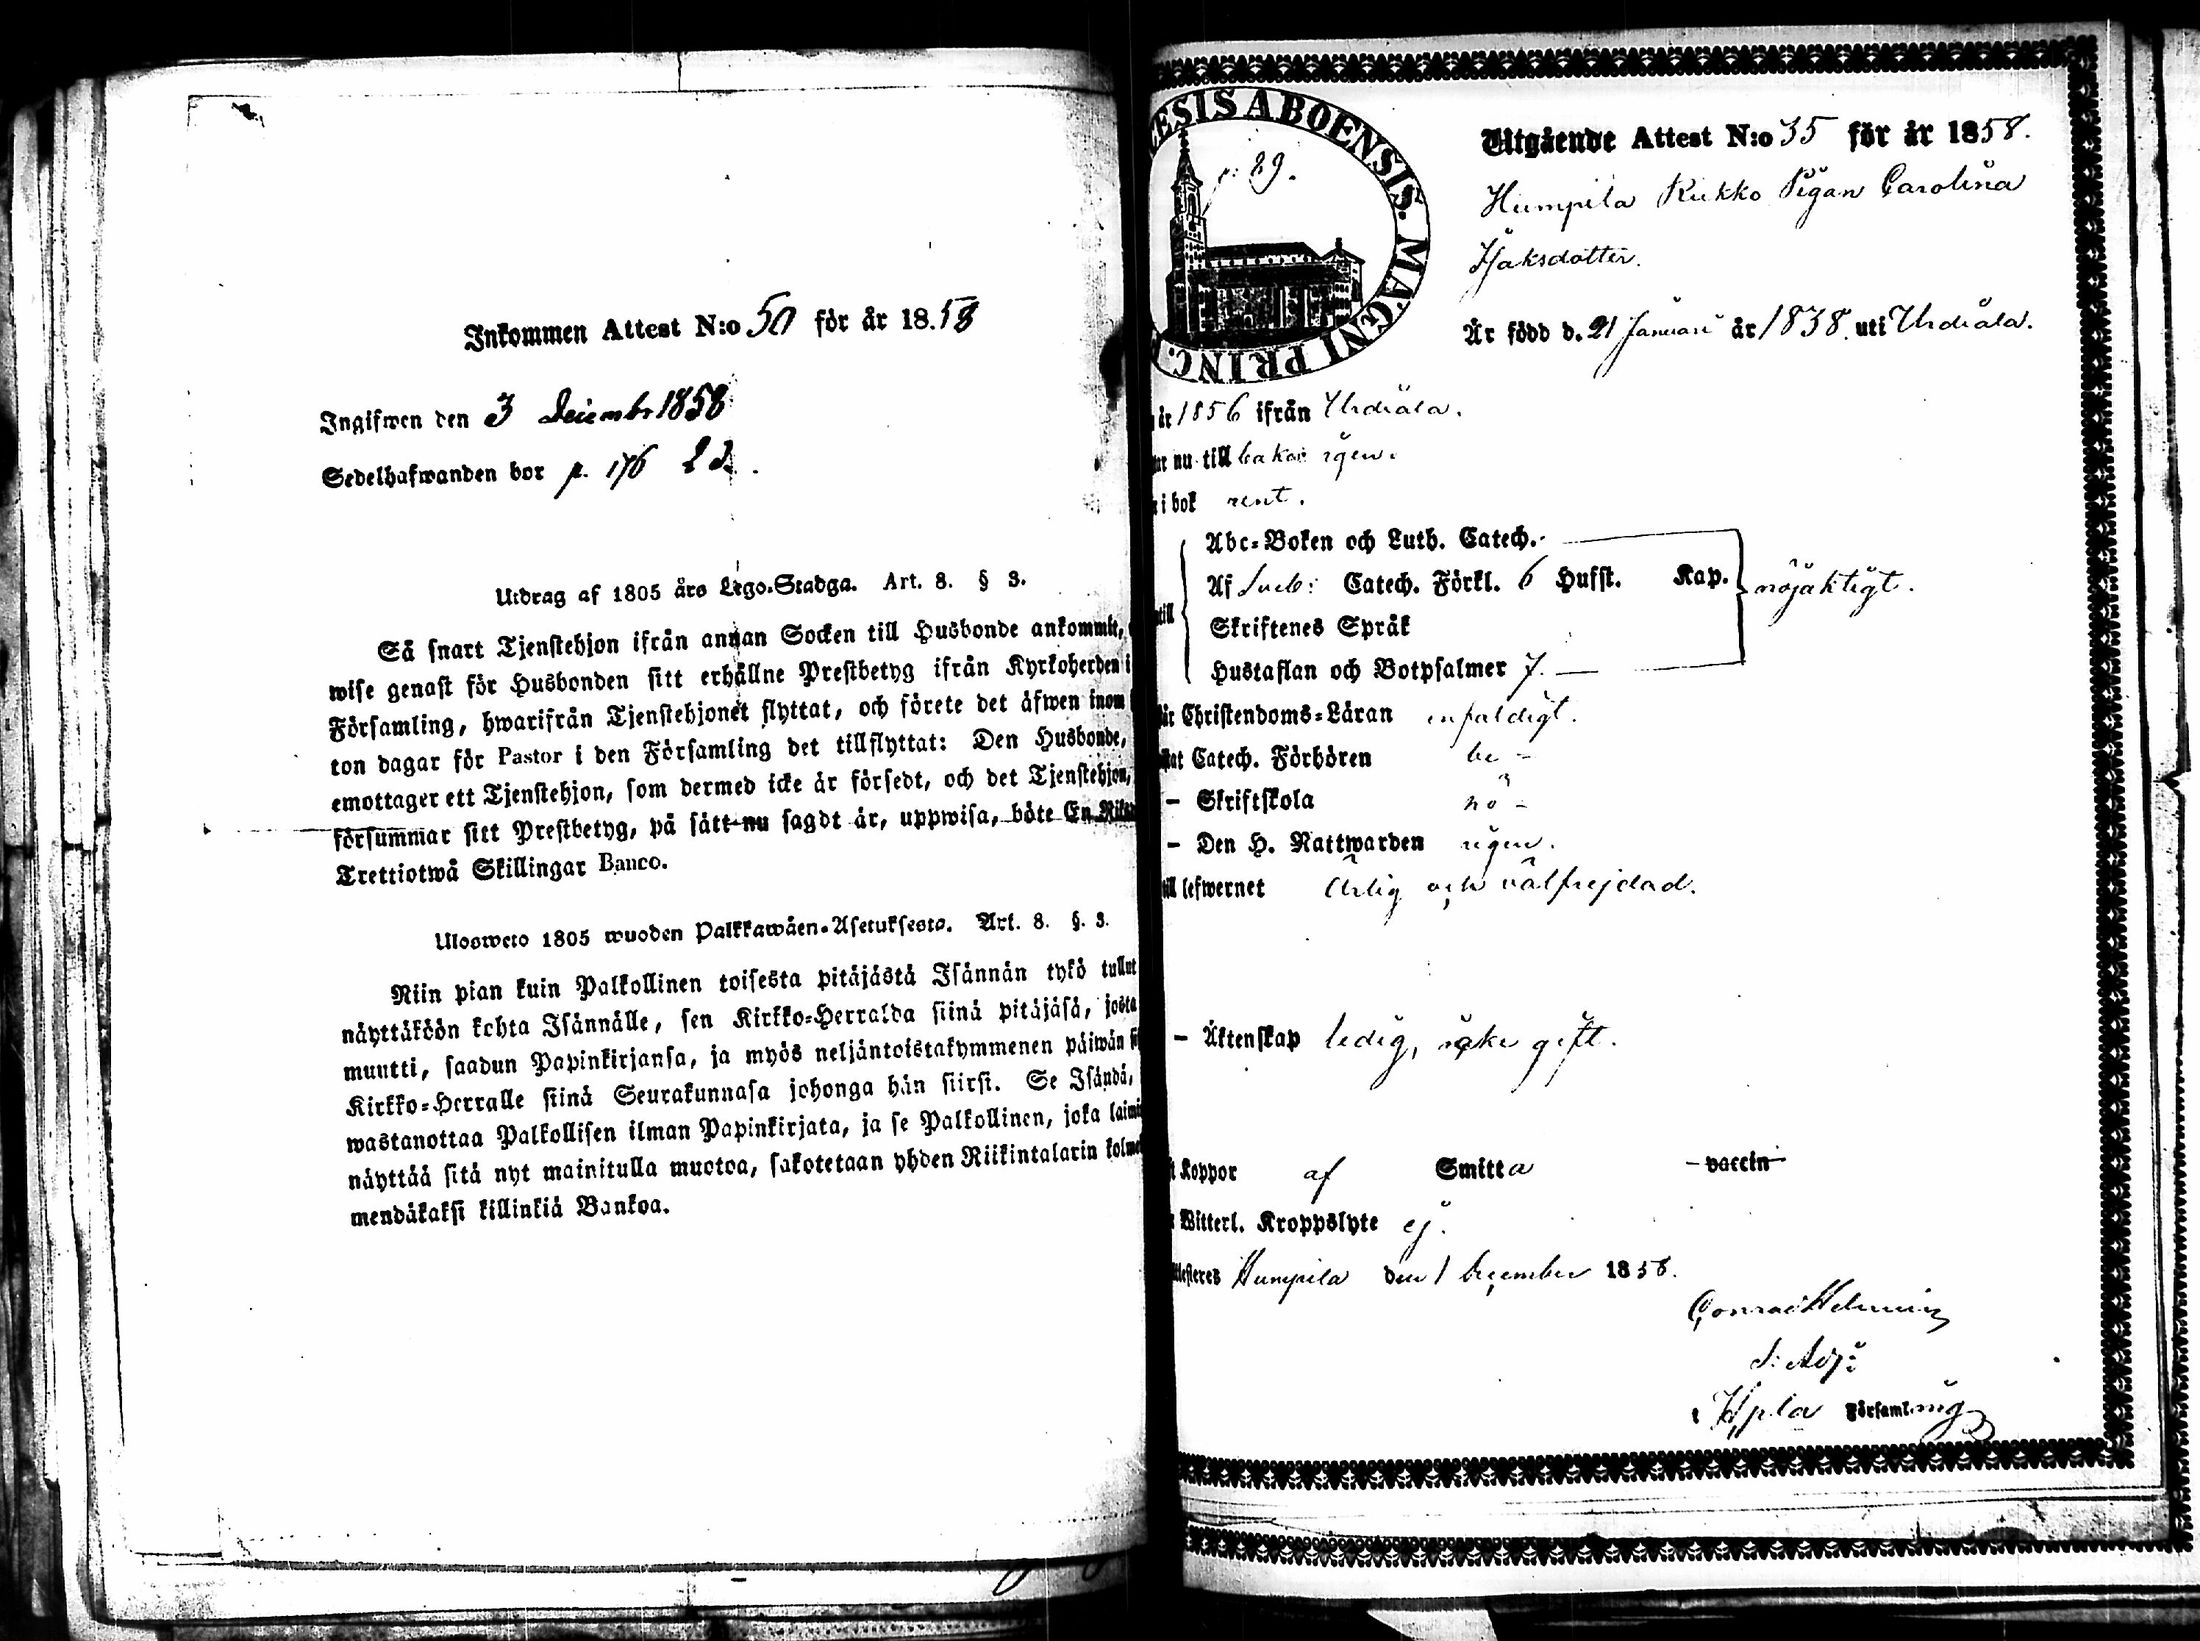 Inkommen Attest N:o 50 för år 18.58
Ingifwen den 3 December 1858
Sedelhafwanden bor p. 176
Utdrag af 1805 års Lego-Stadga. Art. 8. § 3.
Så snart Tjenstehjon ifrån annan Socken till Husbonde ankommit,
wise genast för Husbonden sitt erhållne Prestbetyg ifrån Kyrkoherden i
Församling, hwarifrån Tjenstehjonet flyttat, och förete det äfwen inom
ton dagar för Pastor i den Församling det tillflyttat: Den Husbonde,
emottager ett Tjenstehjon, som dermed icke är försedt, och det Tjenstehjon,
försummar sitt Prestbetyg, på sätt nu sagdt är, uppwisa, böte En Riks
Trettiotwå Skillingar Banco.
Ulosweto 1805 wuoden Palkkawäen-Asetuksesta. Art. 8. §. 3.
Niin pian kuin Palkollinen toisesta pitäjästä Isännän tykö tullut
näyttäköön kohta Isännälle, sen Kirkko-Herralda siinä pitäjäsä, josta
muutti, saadun Papinkirjansa, ja myös neljäntoistakymmenen päiwän
Kirkko-Herralle siinä Seurakunnasa johonga hän siirsi. Se Isändä,
wastanottaa Palkollisen ilman Papinkirjata, ja se Palkollinen, joka laimi
näyttää sitä nyt mainitulla muotoa, sakotetaan yhden Riikintalarin kolme
mendäkaksi killinkiä Bankoa.
ESIS ABOENSIS. MAGNI PRINC.
p. 89.
Utgående Attest N:o 35 för år 1858.
Humpila Kukko Pigan Carolina
Isaksdotter.
Är född d. 21 Januari år 1838. uti Urdiala.
år 1856 ifrån Urdiala.
ar nu till baka igen.
i bok rent.
Abc-Boken och Luth. Catech.
Af Sveb: Catech. Förkl. 6 Hufst. Kap. nöjaktigt.
Skriftenes Språk
till
Hustaflan och Botpsalmer 7.
Christendoms-Läran enfaldigt.
Catech. Förhören be-
- Skriftskola hö-
- Den H. Nattwarden rigen.
till lefwernet Ärlig och välfrejdad.
- Äktenskap ledig, icke gift.
Koppor af Smitta vaccin
Witterl. Kroppslyte ej.
Humpila den 1 December 1858.
Conrad
s: Adj:
i Hpla Församling